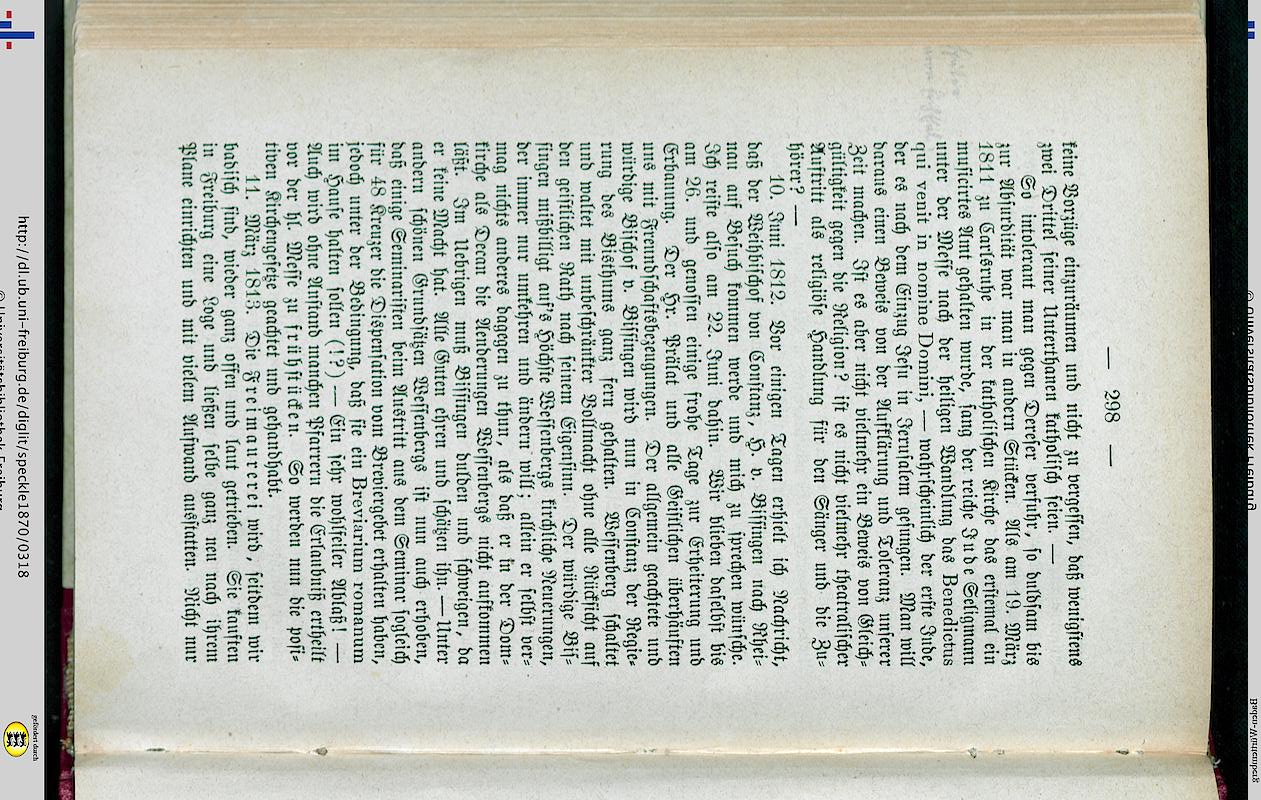 — 298 —
keine Vorzüge einzuräumen und nicht zu vergessen, daß wenigstens
zwei Drittel seiner Unterthanen katholisch seien. —
So intolerant man gegen Dereser verfuhr, so duldsam bis
zur Absurdität war man in andern Stücken. Als am 19. März
1811 zu Carlsruhe in der katholischen Kirche das erstemal ein
musicirtes Amt gehalten wurde, sang der reiche Jude Seligmann
unter der Messe nach der heiligen Wandlung das Benedictus
qui venit in nomine Domini, — wahrscheinlich der erste Jude,
der es nach dem Einzug Jesu in Jerusalem gesungen. Man will
daraus einen Beweis von der Aufklärung und Toleranz unserer
Zeit machen. Ist es aber nicht vielmehr ein Beweis von Gleich-
gültigkeit gegen die Religion? ist es nicht vielmehr theatralischer
Auftritt als religiöse Handlung für den Sänger und die Zu-
hörer? —
10. Juni 1812. Vor einigen Tagen erhielt ich Nachricht,
daß der Weihbischof von Constanz, H. v. Bissingen nach Rhei-
nau auf Besuch kommen werde und mich zu sprechen wünsche.
Ich reiste also am 22. Juni dahin. Wir blieben daselbst bis
am 26. und genossen einige frohe Tage zur Erheiterung und
Erbauung. Der Hr. Prälat und alle Geistlichen überhäuften
uns mit Freundschaftsbezeugungen. Der allgemein geachtete und
würdige Bischof v. Bissingen wird nun in Constanz der Regie-
rung des Bisthums ganz fern gehalten. Wessenberg schaltet
und waltet mit unbeschränkter Vollmacht ohne alle Rücksicht auf
den geistlichen Rath nach seinem Eigensinn. Der würdige Bis-
singen mißbilligt auf's Höchste Wessenbergs kirchliche Neuerungen,
der immer nur umkehren und ändern will; allein er selbst ver-
mag nichts anderes dagegen zu thun, als daß er in der Dom-
kirche als Decan die Aenderungen Wessenbergs nicht aufkommen
läßt. Im Uebrigen muß Bissingen dulden und schweigen, da
er keine Macht hat. Alle Guten ehren und schätzen ihn. — Unter
andern schönen Grundsätzen Wessenbergs ist nun auch erhoben,
daß einige Seminaristen beim Austritt aus dem Seminar sogleich
für 48 Kreuzer die Dispensation vom Breviergebet erhalten haben,
jedoch unter der Bedingung, daß sie ein Breviarium romanum
im Hause halten sollen (!?) — Ein sehr wohlfeiler Ablaß! —
Auch wird ohne Anstand manchen Pfarrern die Erlaubniß ertheilt
vor der hl. Messe zu frühstücken. So werden nun die posi-
tiven Kirchengesetze geachtet und gehandhabt.
11. März 1813. Die Freimaurerei wird, seitdem wir
badisch sind, wieder ganz offen und laut getrieben. Sie kauften
in Freiburg eine Loge und ließen selbe ganz neu nach ihrem
Plane einrichten und mit vielem Aufwand ausstatten. Nicht nur
http://dl.ub.uni-freiburg.de/diglit/speckle1870/0318
© Universitätsbibliothek Freiburg
gefördert durch